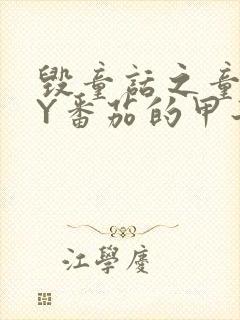 毁童话之童
Y番茄的甲
江學慶